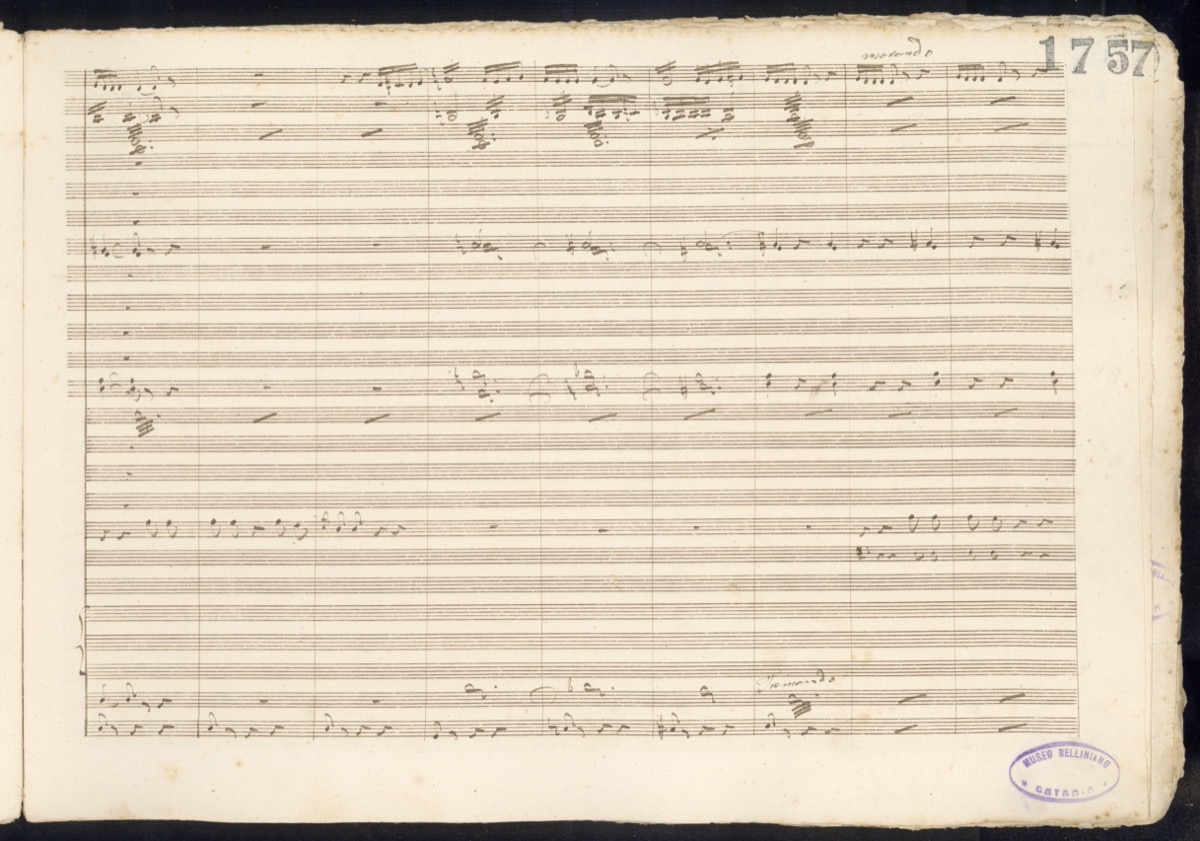 morendo
1757
Tremando
MUSEO BELLINIANO
CATANIA